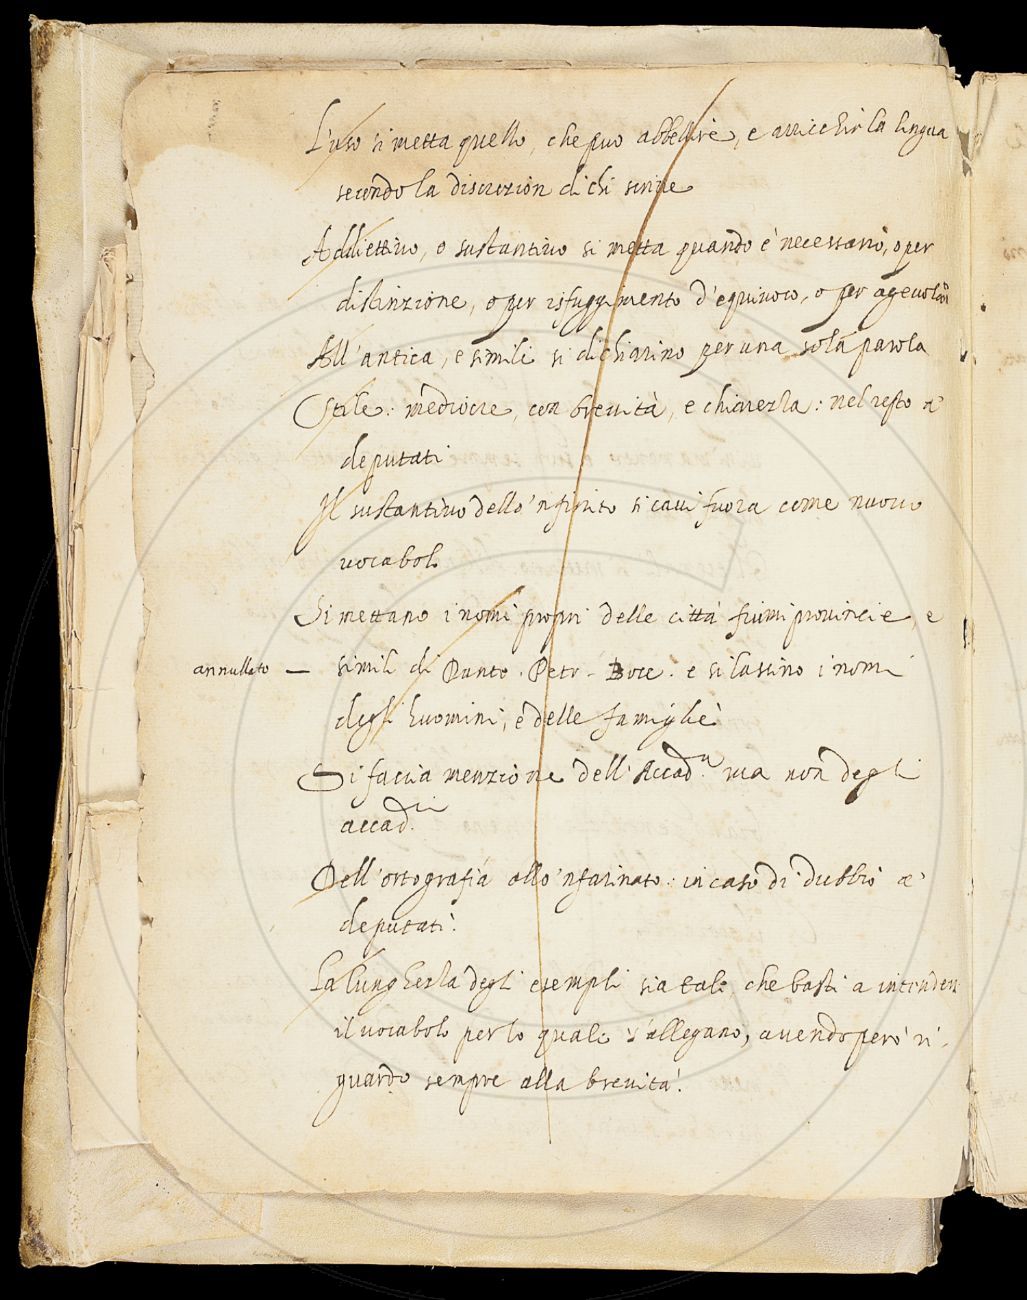 L'uso si metta quello, che può abbellire, e arricchir la lingua
secondo la discrezion di chi scrive
Addiettivo, o sustantivo si metta quando è necessario, o per
distinzione, o per isfuggimento d'equivoco, o per agevolar
All'antica, e simili si dichiarino per una sola parola
Stile: mediocre, con brevità, e chiarezza: nel resto a'
deputati
Il sustantivo dello 'nfinito si cavi fuora come nuovo
vocabolo
Si mettano i nomi propri delle città fiumi provincie, e
annullato — simili di Dante. Petr. Bocc. e si lassino i nomi
degli huomini, e delle famiglie
Si faccia menzione dell'Accad.ª ma non degli
accad.ci
Dell'ortografia allo 'nfarinato: in caso di dubbio a'
deputati.
La lunghezza degli esempli sia tale, che basti a intender
il vocabolo per lo quale s'allegano, avendo però ri-
guardo sempre alla brevità.